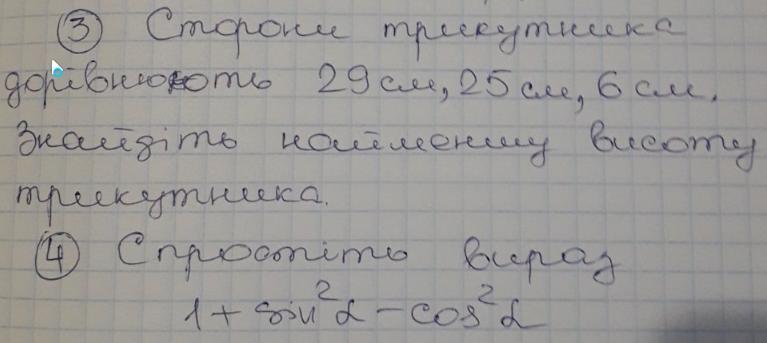 ③ Сторони трикутника
дорівнюють 29 см, 25 см, 6 см.
Знайдіть найменшу висоту
трикутника.
④ Спростіть вираз
1 + sin²α - cos²α